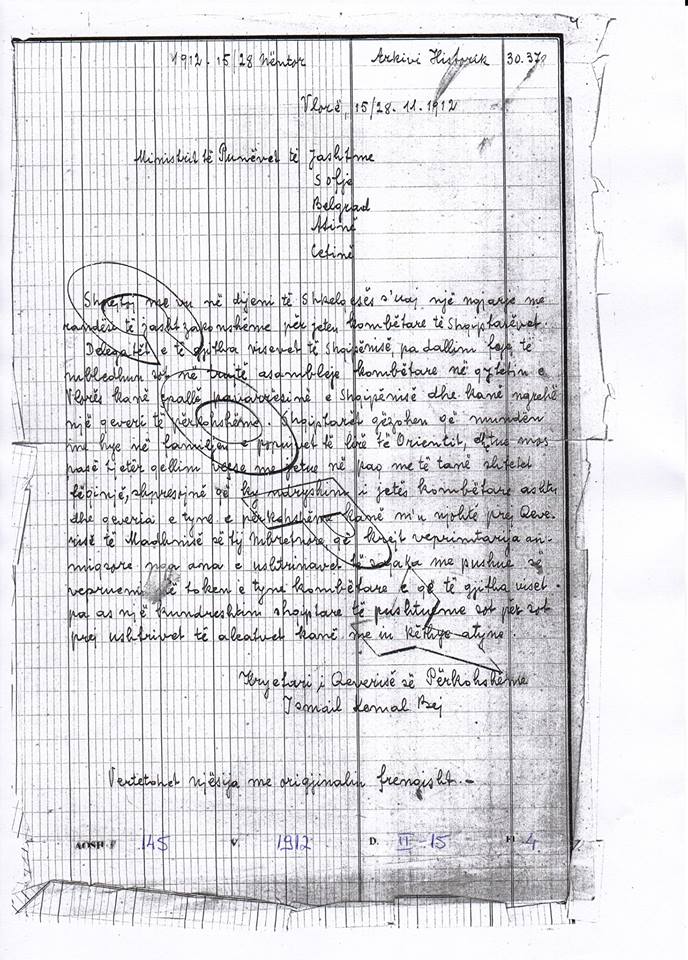 1912 - 15/28 Nëntor Arkivi Historik 30.378
Vlorë, 15/28.11.1912
Ministrit të Punëvet të Jashtme
Sofje
Belgrad
Atinë
Cetinë
me vu në dijeni të Shkelqesës s'uaj një ngjarje me
randësi të jashtzakonshëme për jetën kombëtare të Shqiptarëvet.
Delegatët e të gjitha visevet të Shqipënisë, pa dallim feje të
mbledhun sot në asambleje kombëtare në qytetin e
Vlorës kanë pavarrësinë e Shqipënisë dhe kanë ngrehë
një geveri të përkohshëme. Shqiptarët gëzohen që mundën
me hye në familjen e popujvet të lirë të Orientit, dhe mos
pasë tjetër qellim veçse me jetue në paq me të tanë shtetet
shpresojnë që ky ndryshim i jetës kombëtare ashtu
dhe geveria e tyne e përkohshëme kanë m'u njohtë prej Qeve-
risë të Madhnisë së tij Mbretnore që krejt veprimtarija an-
miqsore nga ana e ushtrinavet të me pushue së
vepruemi në token e tyne kombëtare e që të gjitha viset
pa as një kundreshtim shqiptare të pushtueme sot për sot
prej ushtrivet të aleatvet kanë me iu këthye atyne.
Kryetari i Qeverisë së Përkohshëme
Ismail Kemal Bej
Vertetohet njësija me origjinalin frengisht. -
AQSH F 145 V. 1912 D. II - 15 Fl 4